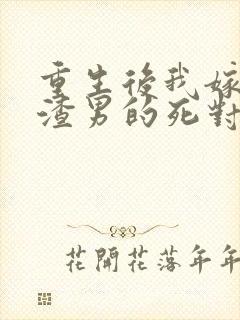 重生後我嫁
渣男的死對
花開花落年年